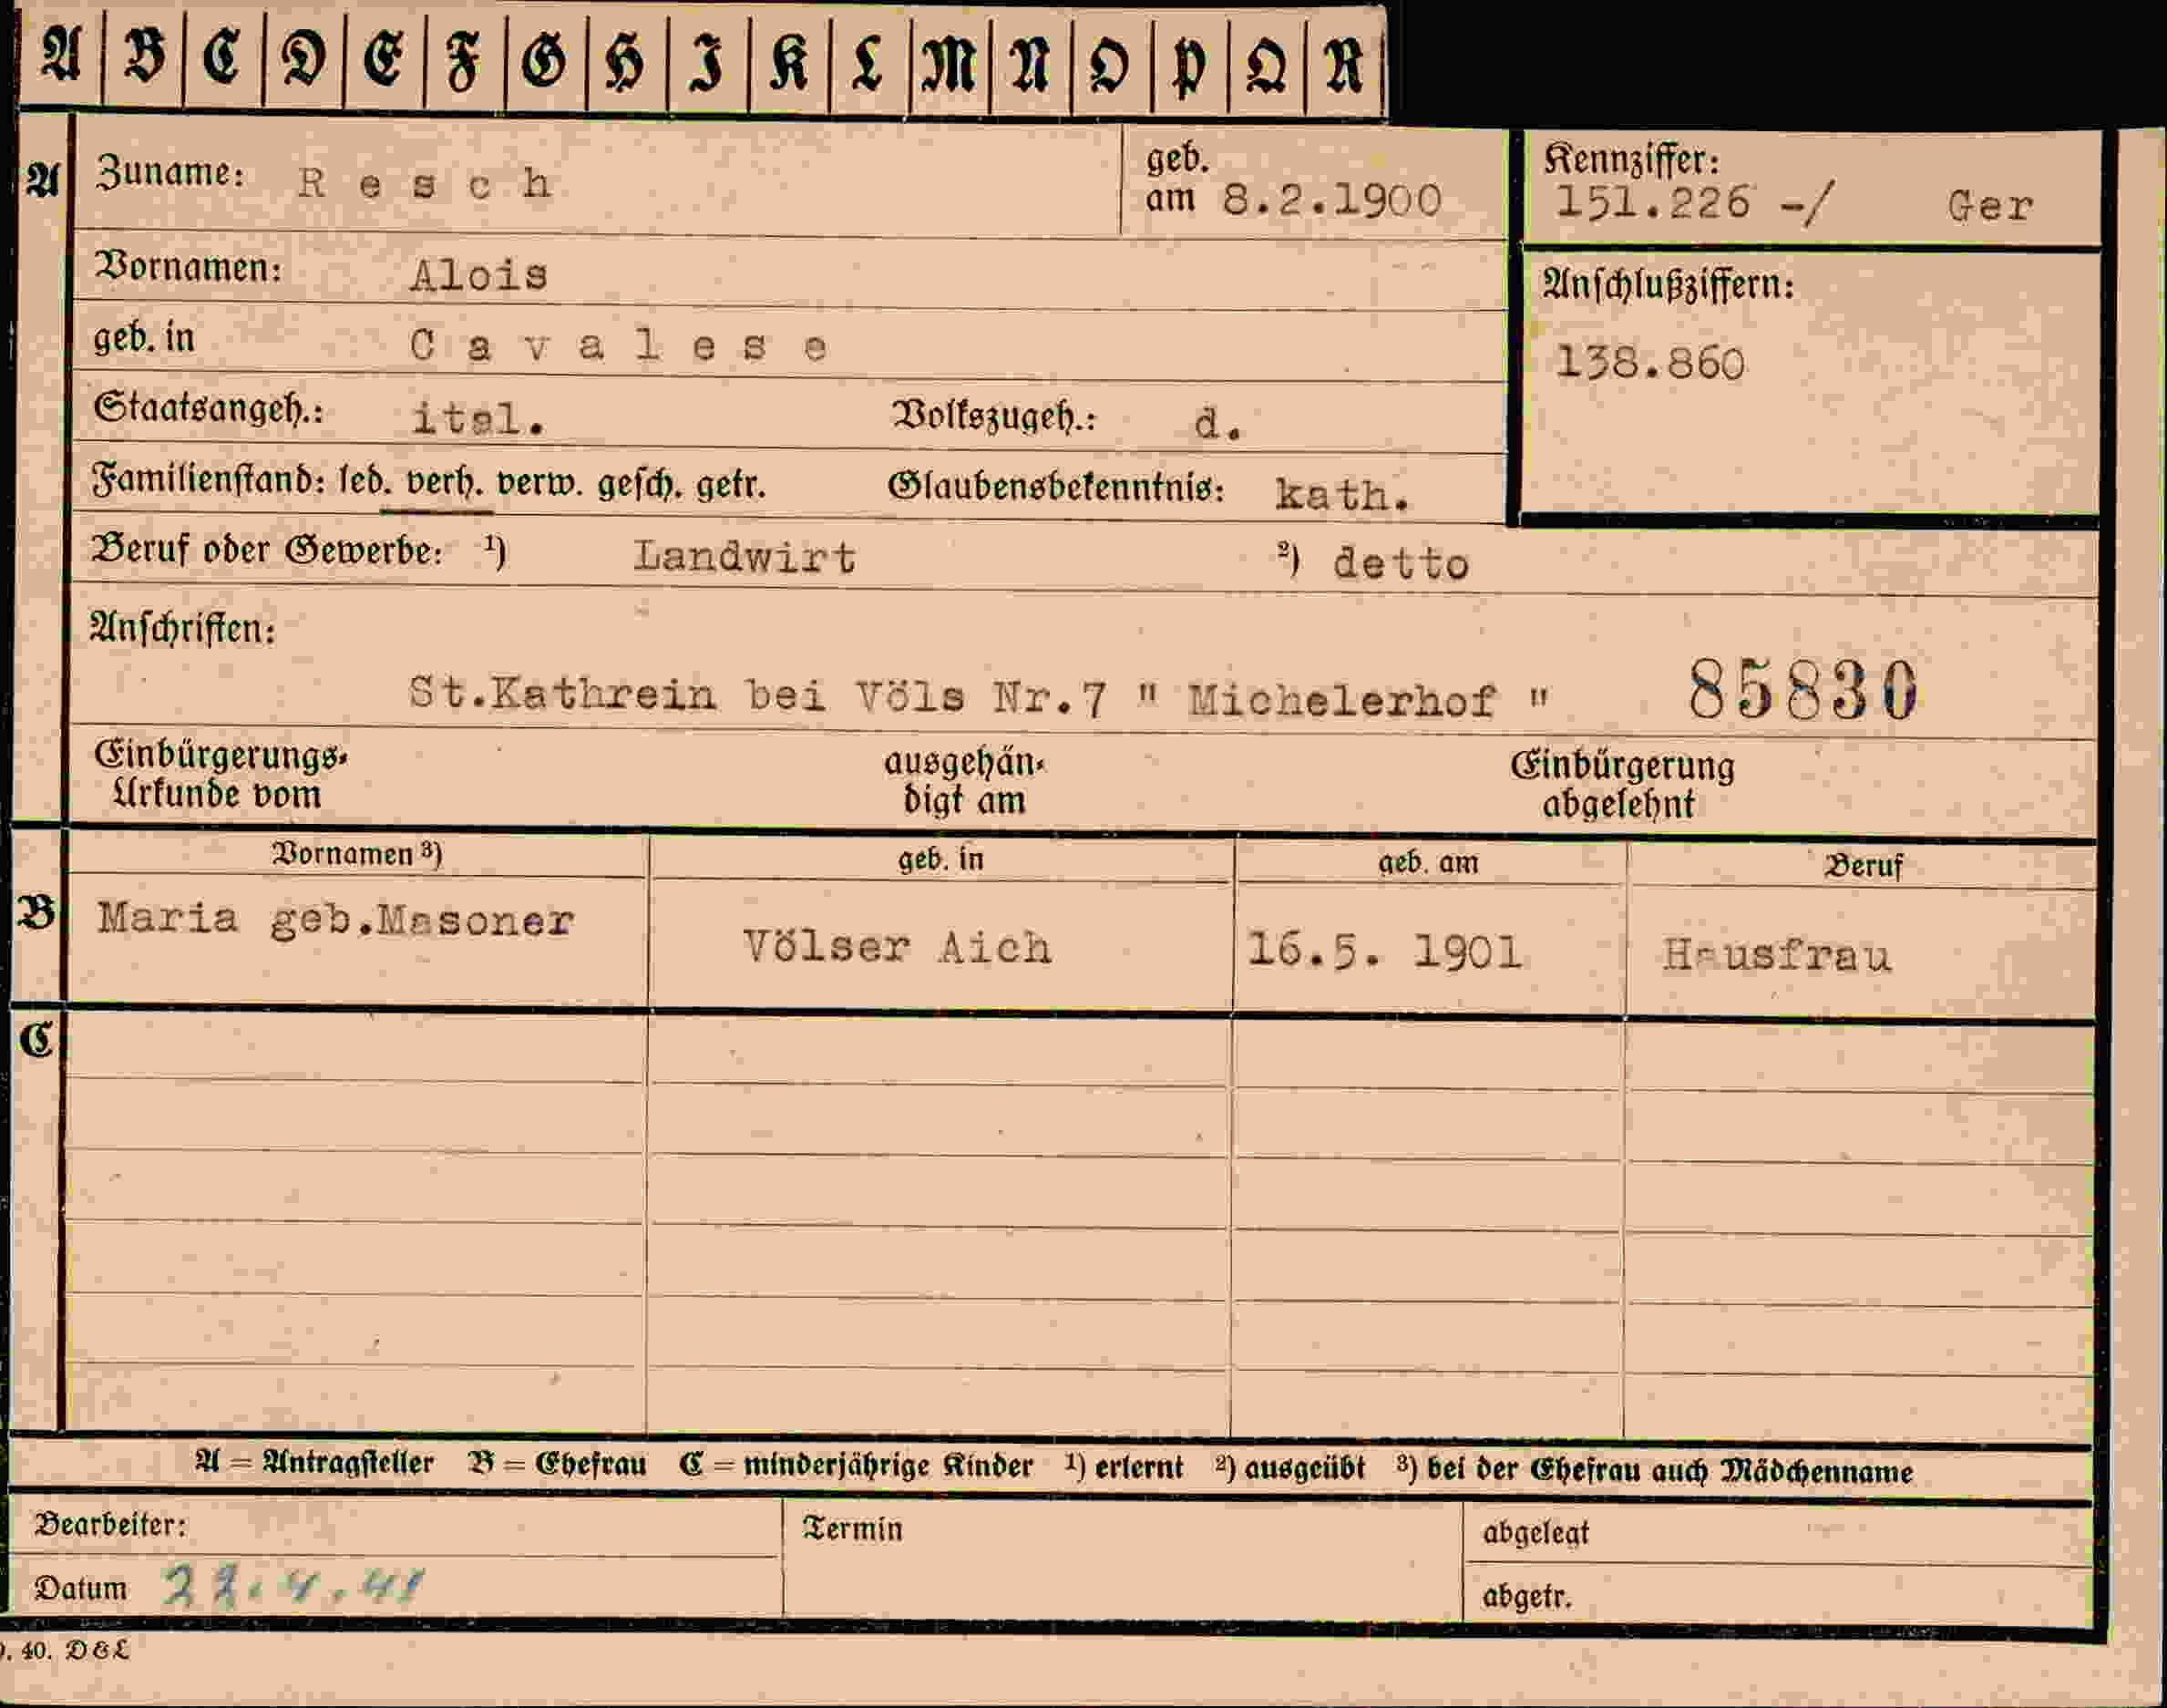 A B C D E F G H I K L M N O P Q R
A Zuname: Resch geb. am 8.2.1900 Kennziffer: 151.226 -/ Ger
Vornamen: Alois Anschlußziffern:
geb. in Cavalese 138.860
Staatsangeh.: ital. Volkszugeh.: d.
Familienstand: led. verh. verw. gesch. getr. Glaubensbekenntnis: kath.
Beruf oder Gewerbe: ¹) Landwirt ²) detto
Anschriften:
St.Kathrein bei Völs Nr.7 " Michelerhof " 85830
Einbürgerungs- ausgehän- Einbürgerung
Urkunde vom digt am abgelehnt
Vornamen ³) geb. in geb. am Beruf
B Maria geb.Masoner Völser Aich 16.5. 1901 Hausfrau
C
A = Antragsteller B = Ehefrau C = minderjährige Kinder ¹) erlernt ²) ausgeübt ³) bei der Ehefrau auch Mädchenname
Bearbeiter: Termin abgelegt
Datum 22.4.41 abgetr.
. 40. D&L